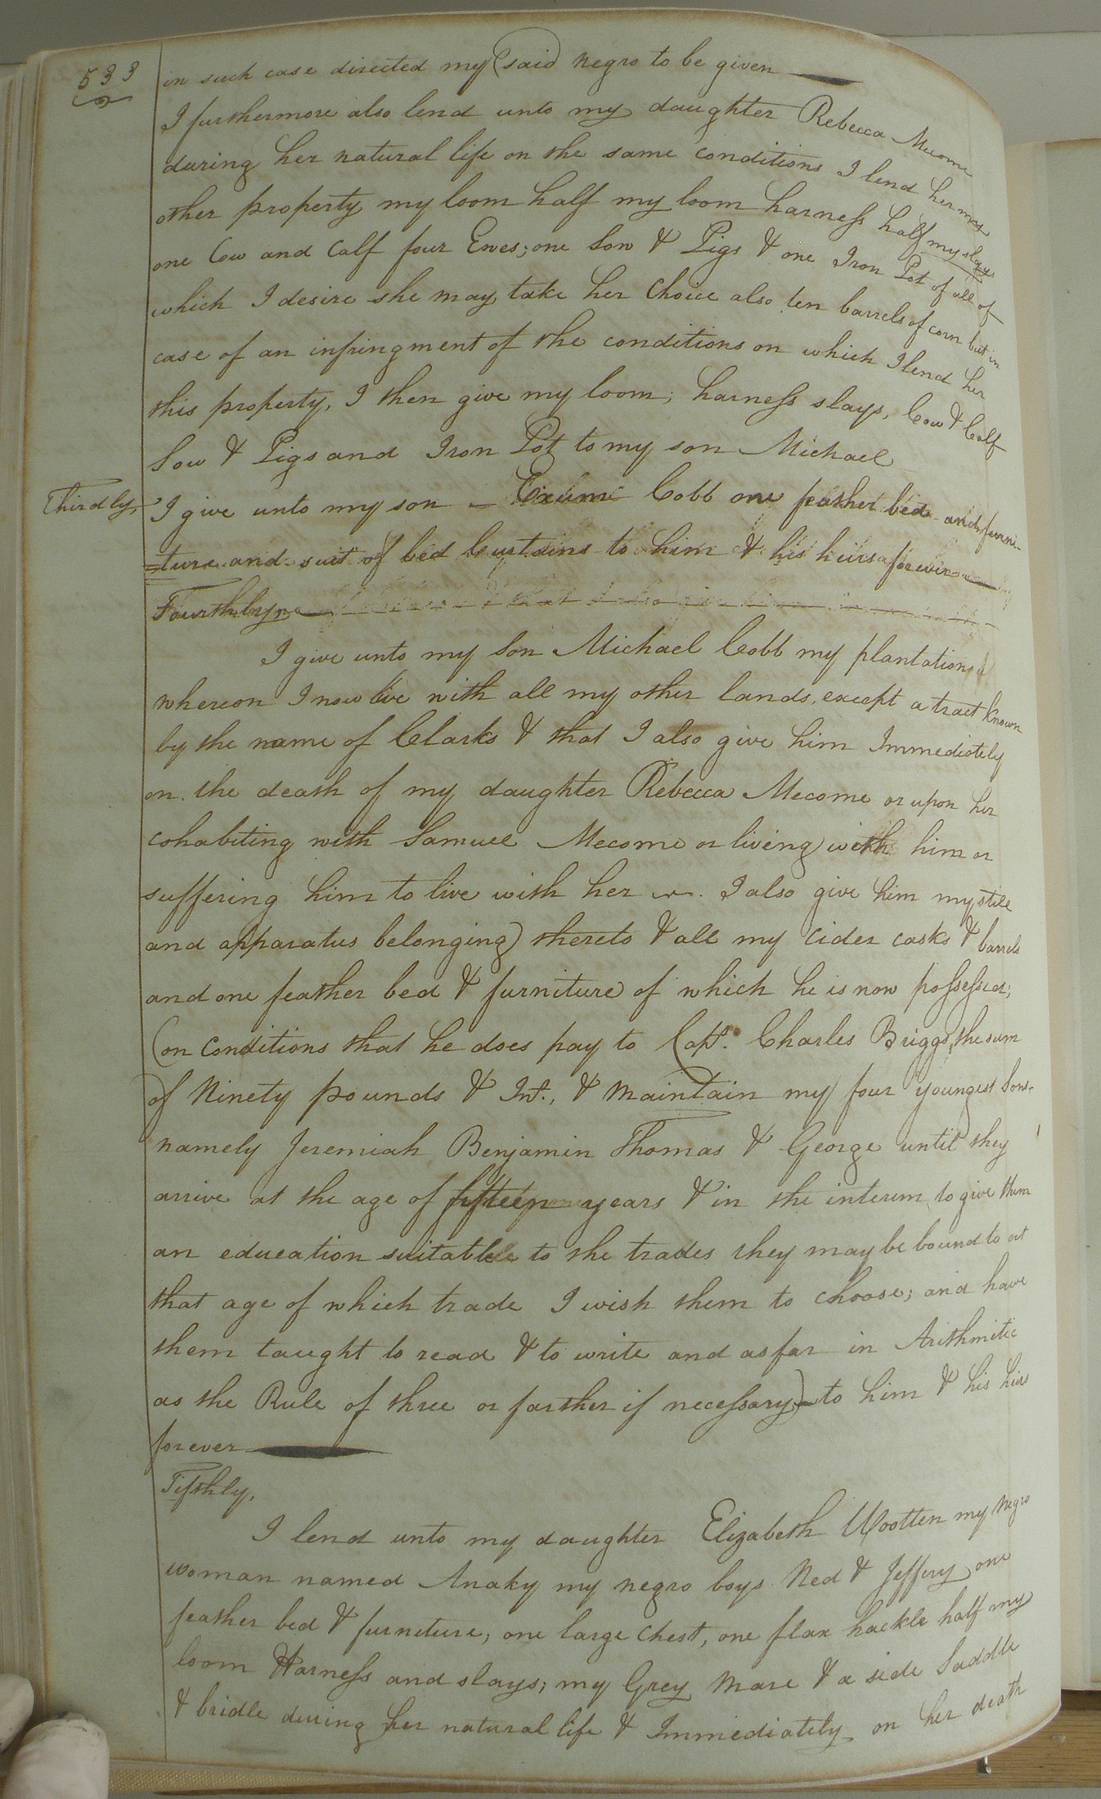 533
in such case directed my said negro to be given
I furthermore also lend unto my daughter Rebecca Mecome
during her natural life on the same conditions I lend her my
other property my loom half my loom harness half my slays
one Cow and Calf four Ewes; one Sow & Pigs & one Iron Pot of all of
which I desire she may take her Choice also ten barrels of corn but in
case of an infringment of the conditions on which I lend her
this property, I then give my loom, harness slays, Cow & Calf
Sow & Pigs and Iron Pot to my son Michael
Thirdly,
I give unto my son Exum Cobb one feather bed and furni-
=ture and suit of bed Curtains to him & his heirs forever
Fourthly
I give unto my Son Michael Cobb my plantation
whereon I now live with all my other lands, except a tract known
by the name of Clarks & that I also give him Immediately
on the death of my daughter Rebecca Mecome or upon her
cohabiting with Samuel Mecome or living with him or
suffering him to live with her I also give him my still
and apparatus belonging thereto & all my Cider casks & barrels
and one feather bed & furniture of which he is now possessed;
(on conditions that he does pay to Capt. Charles Briggs, the sum
of Ninety pounds & Int., & maintain my four youngest Sons
namely Jeremiah Benjamin Thomas & George until they
arrive at the age of fifteen years & in the interim to give them
an education suitable to the trades they may be bound to at
that age of which trade I wish them to choose; and have
them taught to read & to write and as far in Arithmetic
as the Rule of three or farther if necessary) to him & his heirs
forever
Fifthly,
I lend unto my daughter Elizabeth Wootten my Negro
woman named Anaky my negro boys Ned & Jeffery one
feather bed & furneture; one large Chest, one flax hackle half my
loom Harness and slays; my Grey Mare & a side Saddle
& bridle during her natural life & Immediately on her death